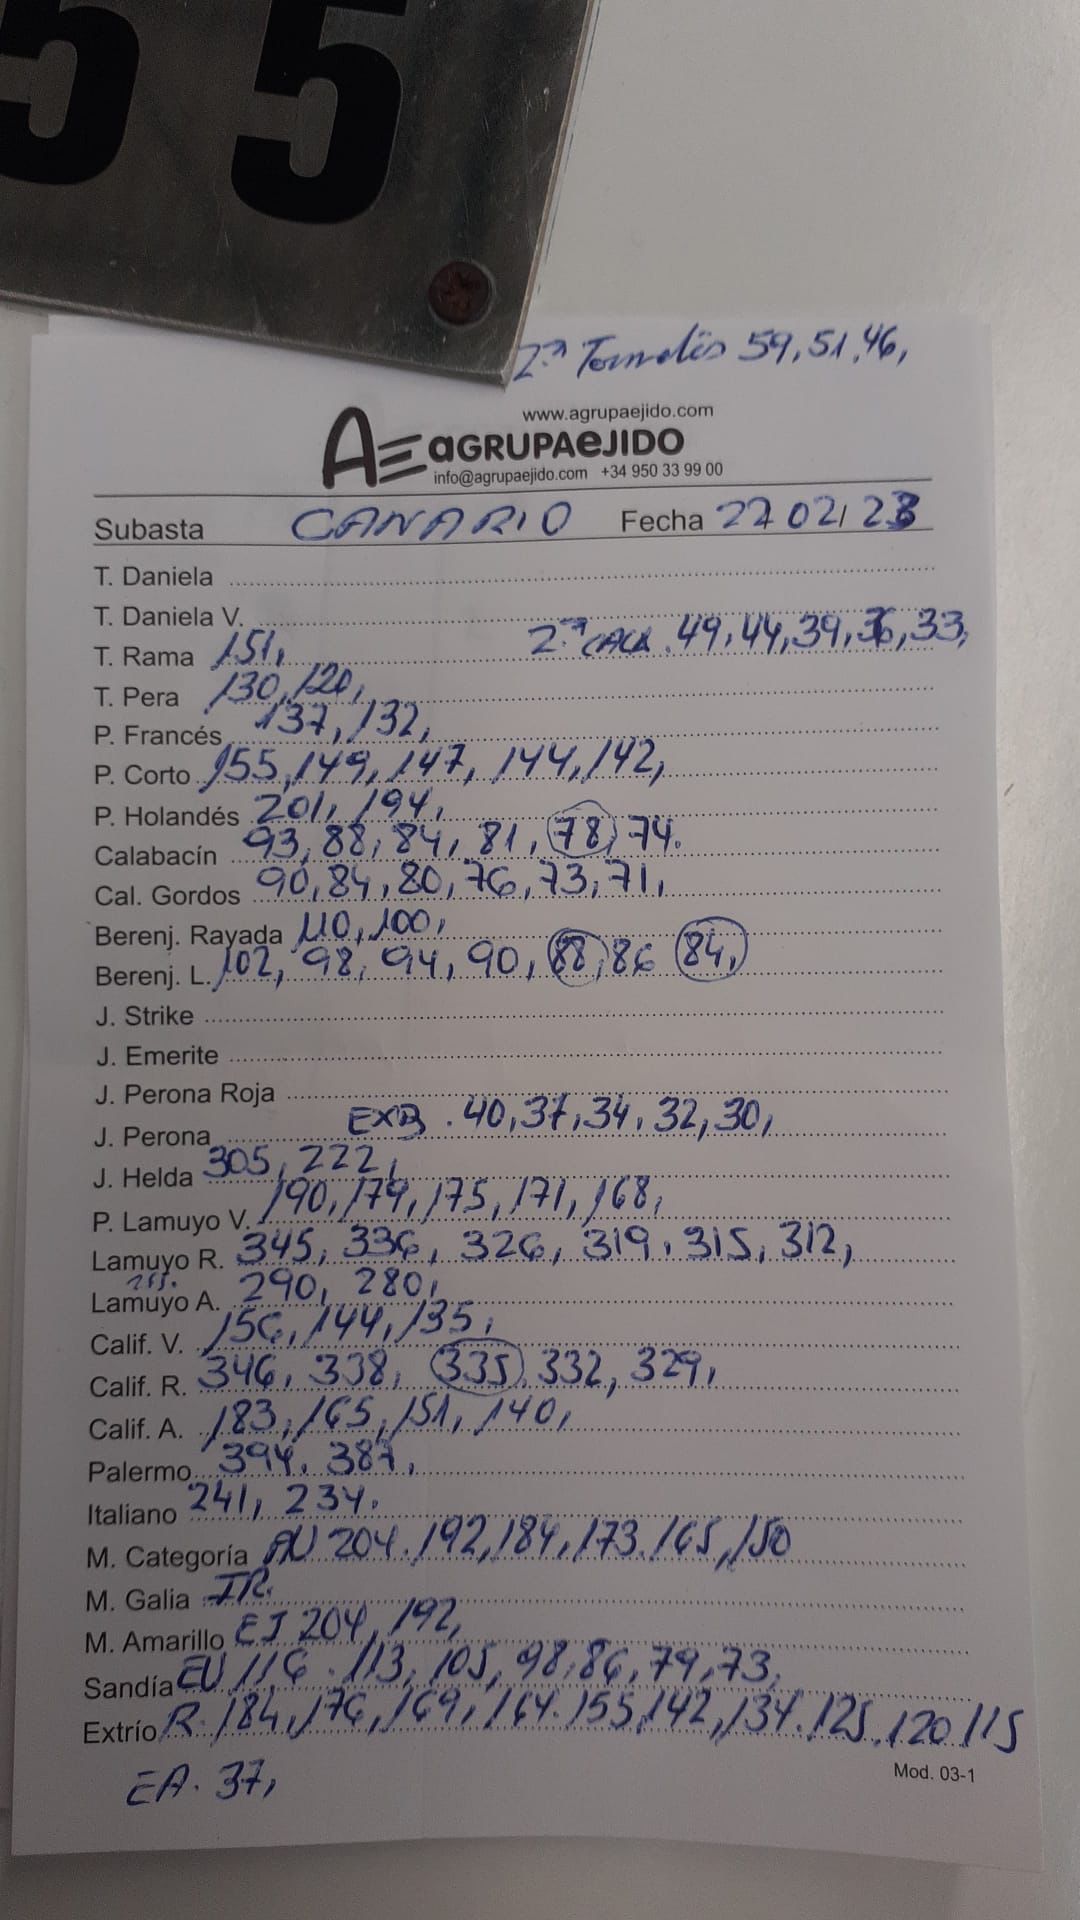 55
2.ª Tomates 59, 51, 46,
www.agrupaejido.com
AE aGRUPAeJIDO
info@agrupaejido.com +34 950 33 99 00
Subasta CANARIO Fecha 27 02/ 23
T. Daniela
T. Daniela V.
2.ª CALA. 49, 44, 39, 36, 33,
T. Rama 151,
T. Pera 130, 120,
P. Francés 137, 132,
P. Corto 155, 149, 147, 144, 142,
P. Holandés 201, 194,
Calabacín 93, 88, 84, 81, 78, 74.
Cal. Gordos 90, 84, 80, 76, 73, 71,
Berenj. Rayada 110, 100,
Berenj. L. 102, 98, 94, 90, 88, 86 84,
J. Strike
J. Emerite
J. Perona Roja
J. Perona EXB. 40, 37, 34, 32, 30,
J. Helda 305, 222,
P. Lamuyo V. 190, 179, 175, 171, 168,
Lamuyo R. 345, 336, 326, 319, 315, 312,
Lamuyo A. 290, 280,
Calif. V. 156, 144, 135,
Calif. R. 346, 338, 335, 332, 329,
Calif. A. 183, 165, 151, 140,
Palermo 394, 387,
Italiano 241, 234.
M. Categoría AU 204. 192, 184, 173. 165, 150
M. Galia IR.
M. Amarillo EJ 204, 192,
Sandía EU 116. 113, 105, 98, 86, 79, 73,
Extrío R. 184, 176, 169, 164. 155, 142, 134. 125, 120 115
EA. 37,
Mod. 03-1